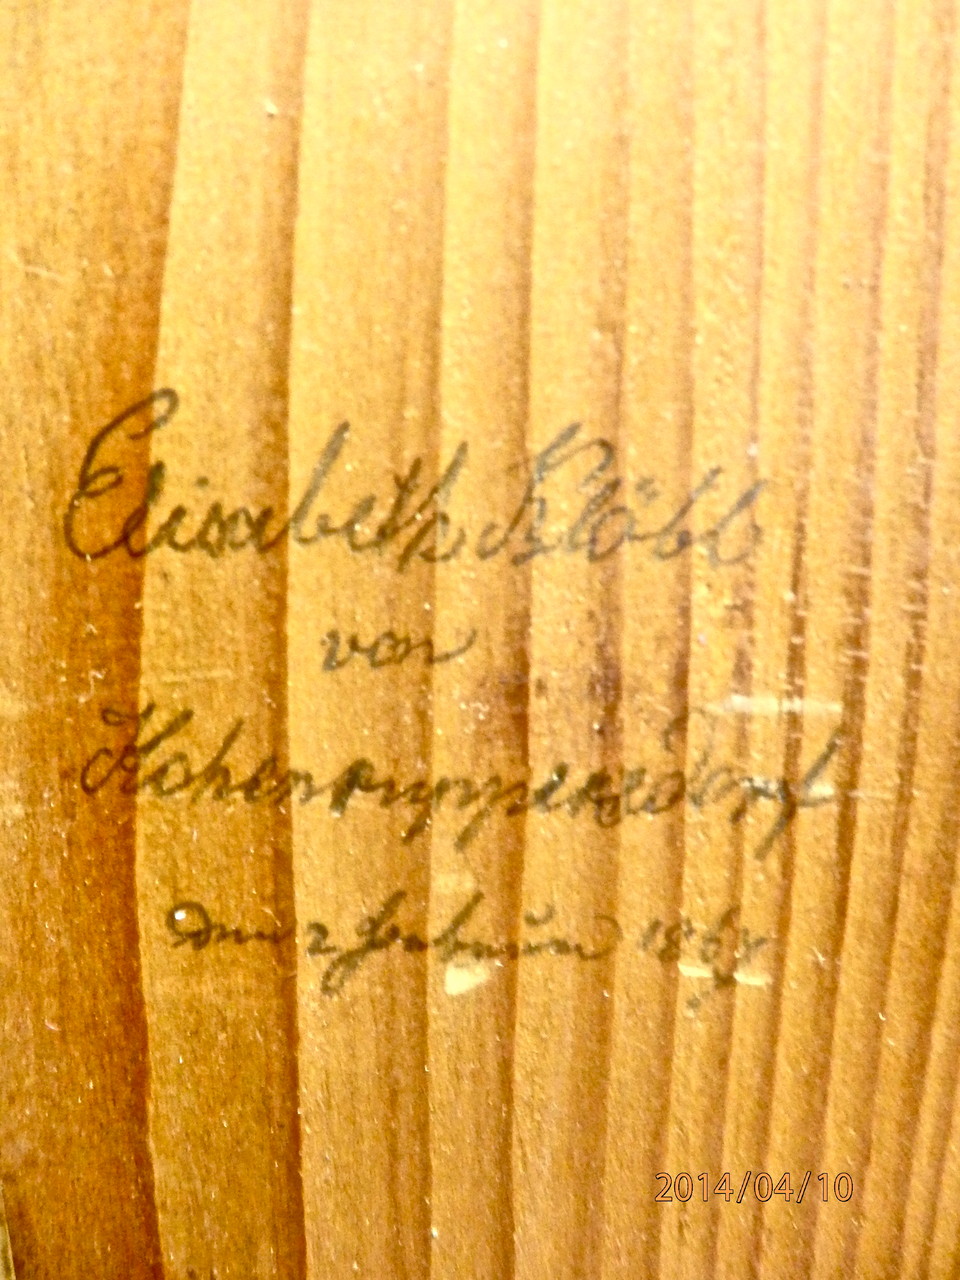 Elisabeth Stöbl
von
Hohenruppersdorf
den 2 Februar 186
2014/04/10